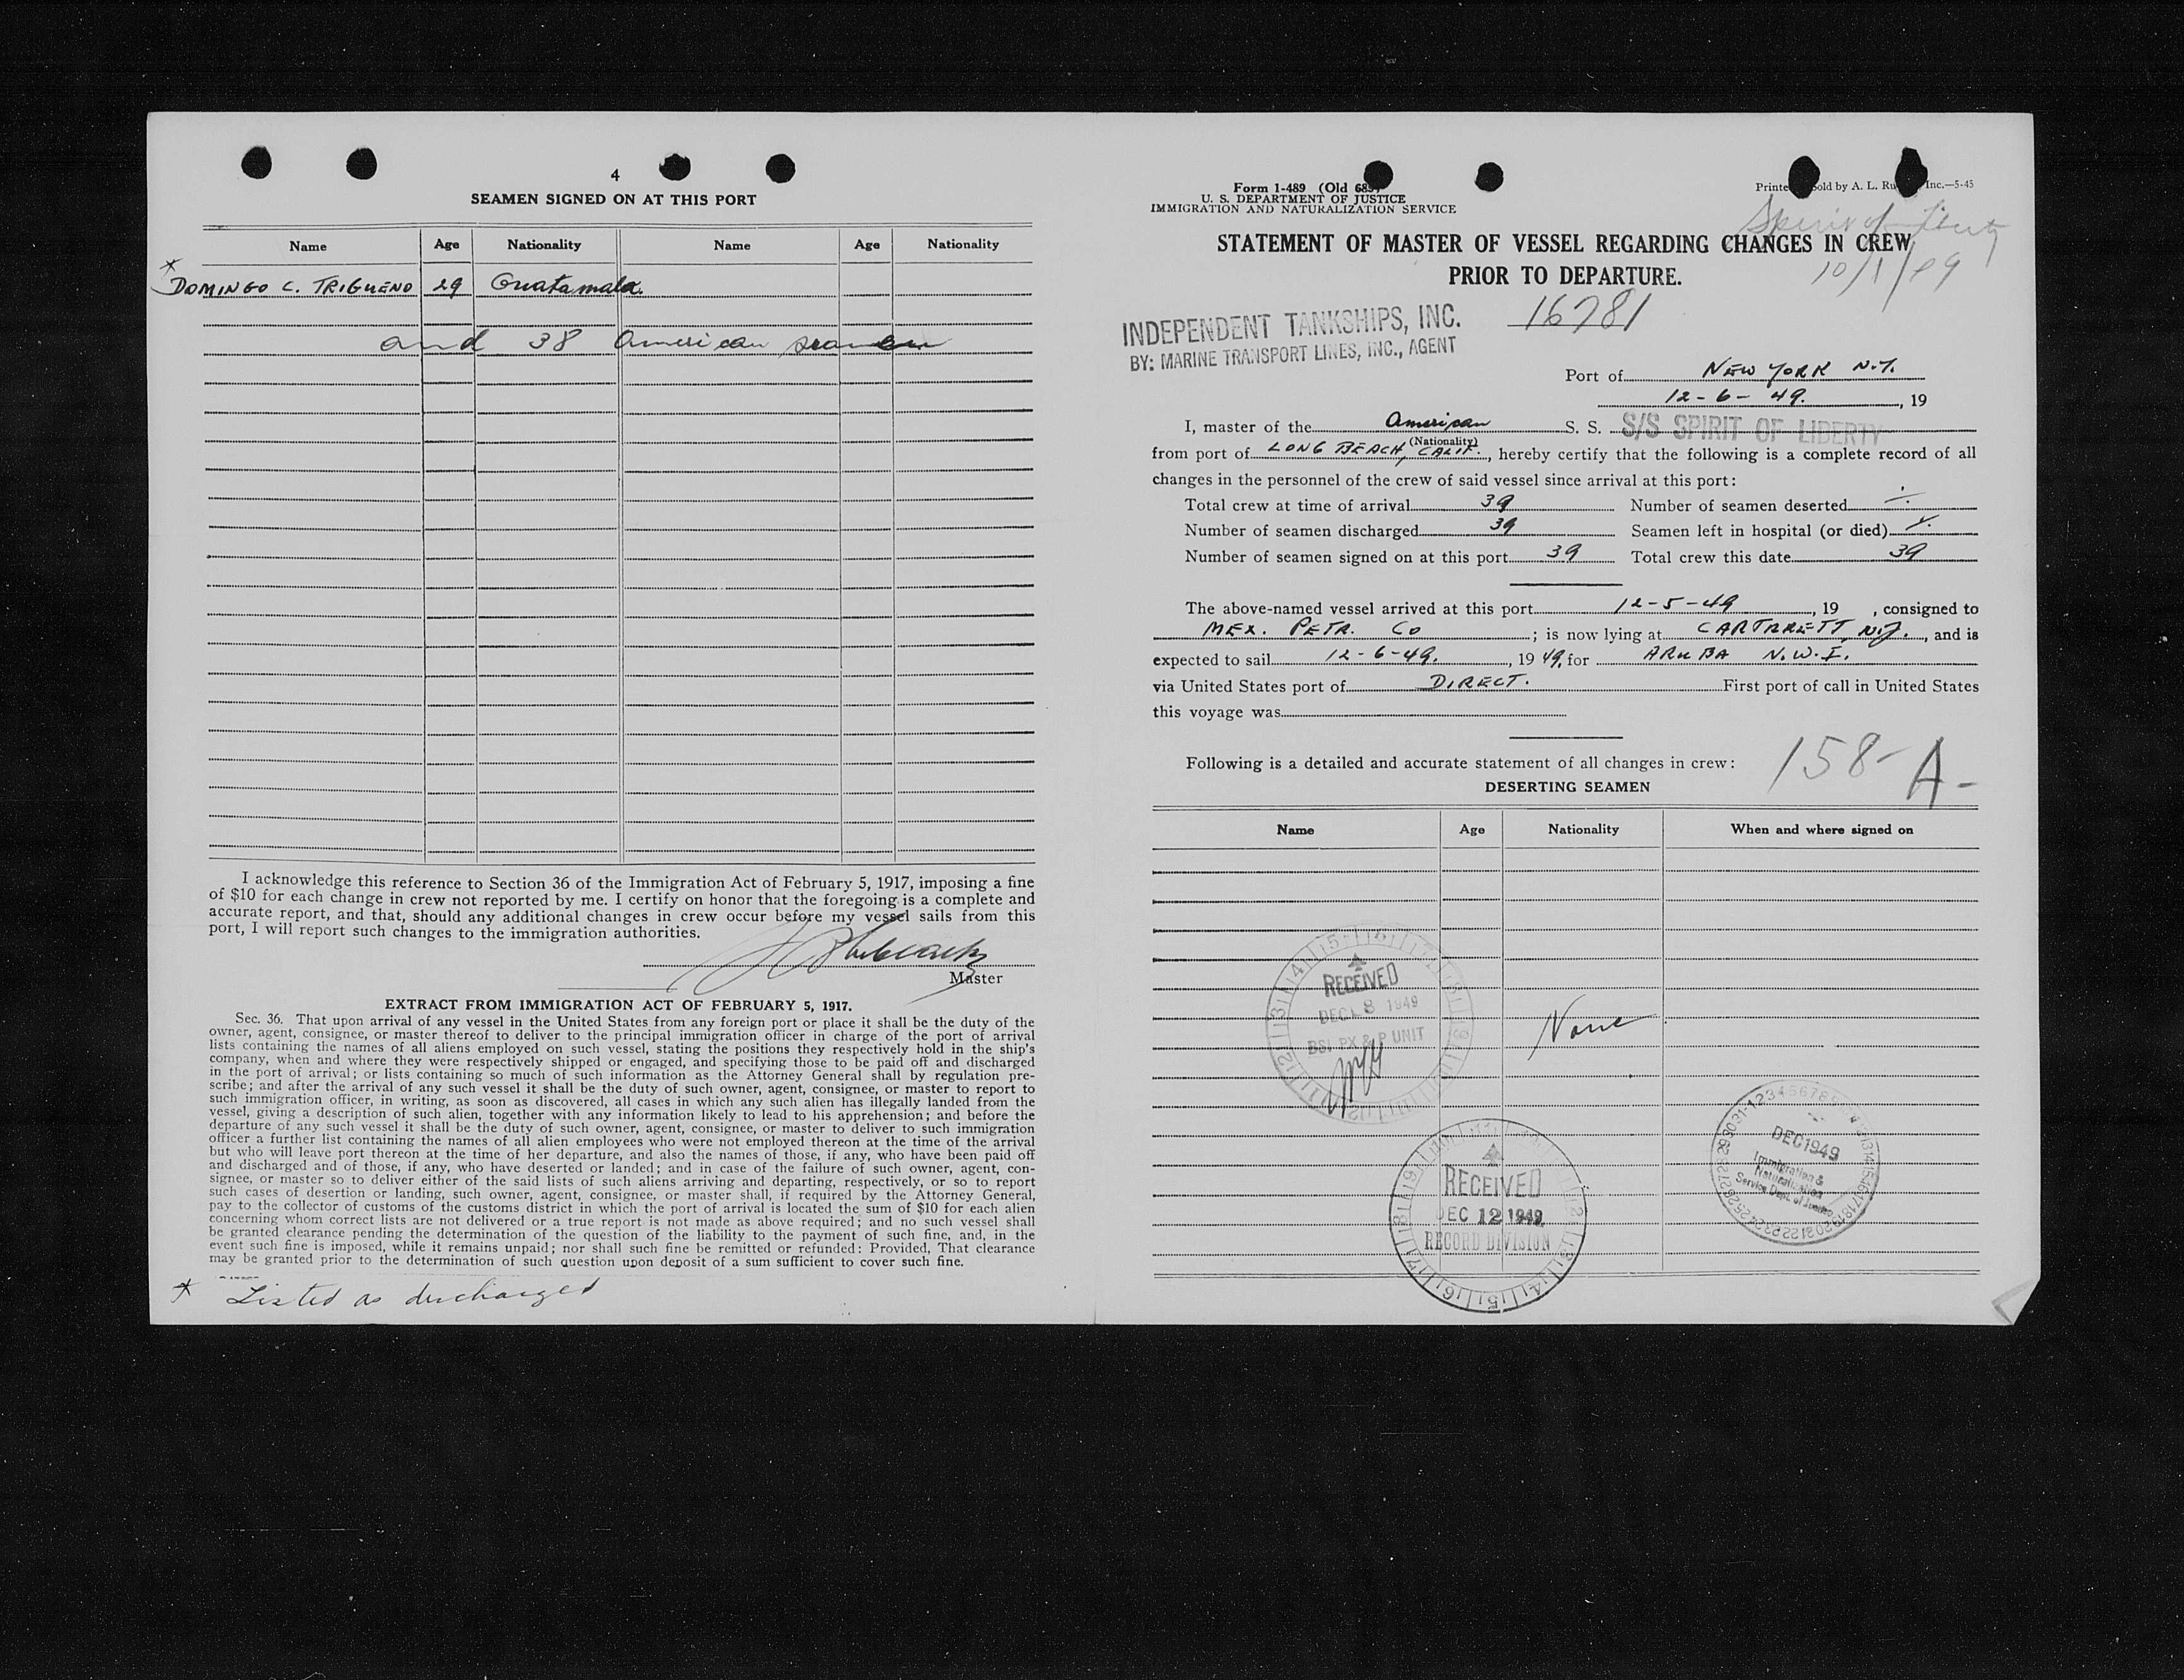 4
SEAMEN SIGNED ON AT THIS PORT
Name Age Nationality Name Age Nationality
* DOMINGO C. TRIGUENO 29 Guatamala.
and 38 American seamen
I acknowledge this reference to Section 36 of the Immigration Act of February 5, 1917, imposing a fine
of $10 for each change in crew not reported by me. I certify on honor that the foregoing is a complete and
accurate report, and that, should any additional changes in crew occur before my vessel sails from this
port, I will report such changes to the immigration authorities.
Master
EXTRACT FROM IMMIGRATION ACT OF FEBRUARY 5, 1917.
Sec. 36. That upon arrival of any vessel in the United States from any foreign port or place it shall be the duty of the
owner, agent, consignee, or master thereof to deliver to the principal immigration officer in charge of the port of arrival
lists containing the names of all aliens employed on such vessel, stating the positions they respectively hold in the ship's
company, when and where they were respectively shipped or engaged, and specifying those to be paid off and discharged
in the port of arrival; or lists containing so much of such information as the Attorney General shall by regulation pre-
scribe; and after the arrival of any such vessel it shall be the duty of such owner, agent, consignee, or master to report to
such immigration officer, in writing, as soon as discovered, all cases in which any such alien has illegally landed from the
vessel, giving a description of such alien, together with any information likely to lead to his apprehension; and before the
departure of any such vessel it shall be the duty of such owner, agent, consignee, or master to deliver to such immigration
officer a further list containing the names of all alien employees who were not employed thereon at the time of the arrival
but who will leave port thereon at the time of her departure, and also the names of those, if any, who have been paid off
and discharged and of those, if any, who have deserted or landed; and in case of the failure of such owner, agent, con-
signee, or master so to deliver either of the said lists of such aliens arriving and departing, respectively, or so to report
such cases of desertion or landing, such owner, agent, consignee, or master shall, if required by the Attorney General,
pay to the collector of customs of the customs district in which the port of arrival is located the sum of $10 for each alien
concerning whom correct lists are not delivered or a true report is not made as above required; and no such vessel shall
be granted clearance pending the determination of the question of the liability to the payment of such fine, and, in the
event such fine is imposed, while it remains unpaid; nor shall such fine be remitted or refunded: Provided, That clearance
may be granted prior to the determination of such question upon deposit of a sum sufficient to cover such fine.
* Listed as discharged
Form 1-489 (Old 689)
U. S. DEPARTMENT OF JUSTICE
IMMIGRATION AND NATURALIZATION SERVICE
Sold by A. L. Inc.—5-45
Spirit of Liberty
STATEMENT OF MASTER OF VESSEL REGARDING CHANGES IN CREW
PRIOR TO DEPARTURE.
10/1/49
INDEPENDENT TANKSHIPS, INC.
BY: MARINE TRANSPORT LINES, INC., AGENT
16781
Port of NEW YORK N.Y.
12-6-49. , 19
I, master of the American S. S. S/S SPIRIT OF LIBERTY
(Nationality)
from port of LONG BEACH, CALIF. , hereby certify that the following is a complete record of all
changes in the personnel of the crew of said vessel since arrival at this port:
Total crew at time of arrival 39 Number of seamen deserted
Number of seamen discharged 39 Seamen left in hospital (or died)
Number of seamen signed on at this port 39 Total crew this date 39
The above-named vessel arrived at this port 12-5-49 , 19 , consigned to
MEX. PETR. CO ; is now lying at CARTARETT, N.J. , and is
expected to sail 12-6-49. , 19 49, for ARUBA N.W.I.
via United States port of DIRECT. First port of call in United States
this voyage was
Following is a detailed and accurate statement of all changes in crew:
158-A-
DESERTING SEAMEN
Name Age Nationality When and where signed on
None
RECEIVED
DEC 8 1949
BSI PX & P UNIT
RECEIVED
DEC 12 1949
RECORD DIVISION
DEC 1949
Immigration &
Naturalization
Service Dept. of Justice